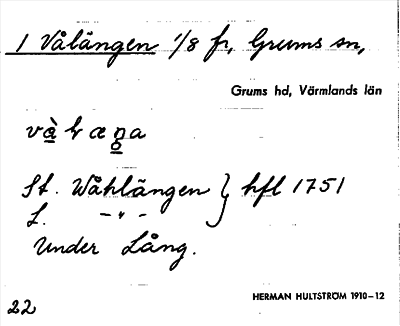 1 Vålängen 1/8 fr, Grums sn,
Grums hd, Värmlands län
St. Wåhlängen } hfl 1751
L. -"-
Under Lång.
22
HERMAN HULTSTRÖM 1910–12